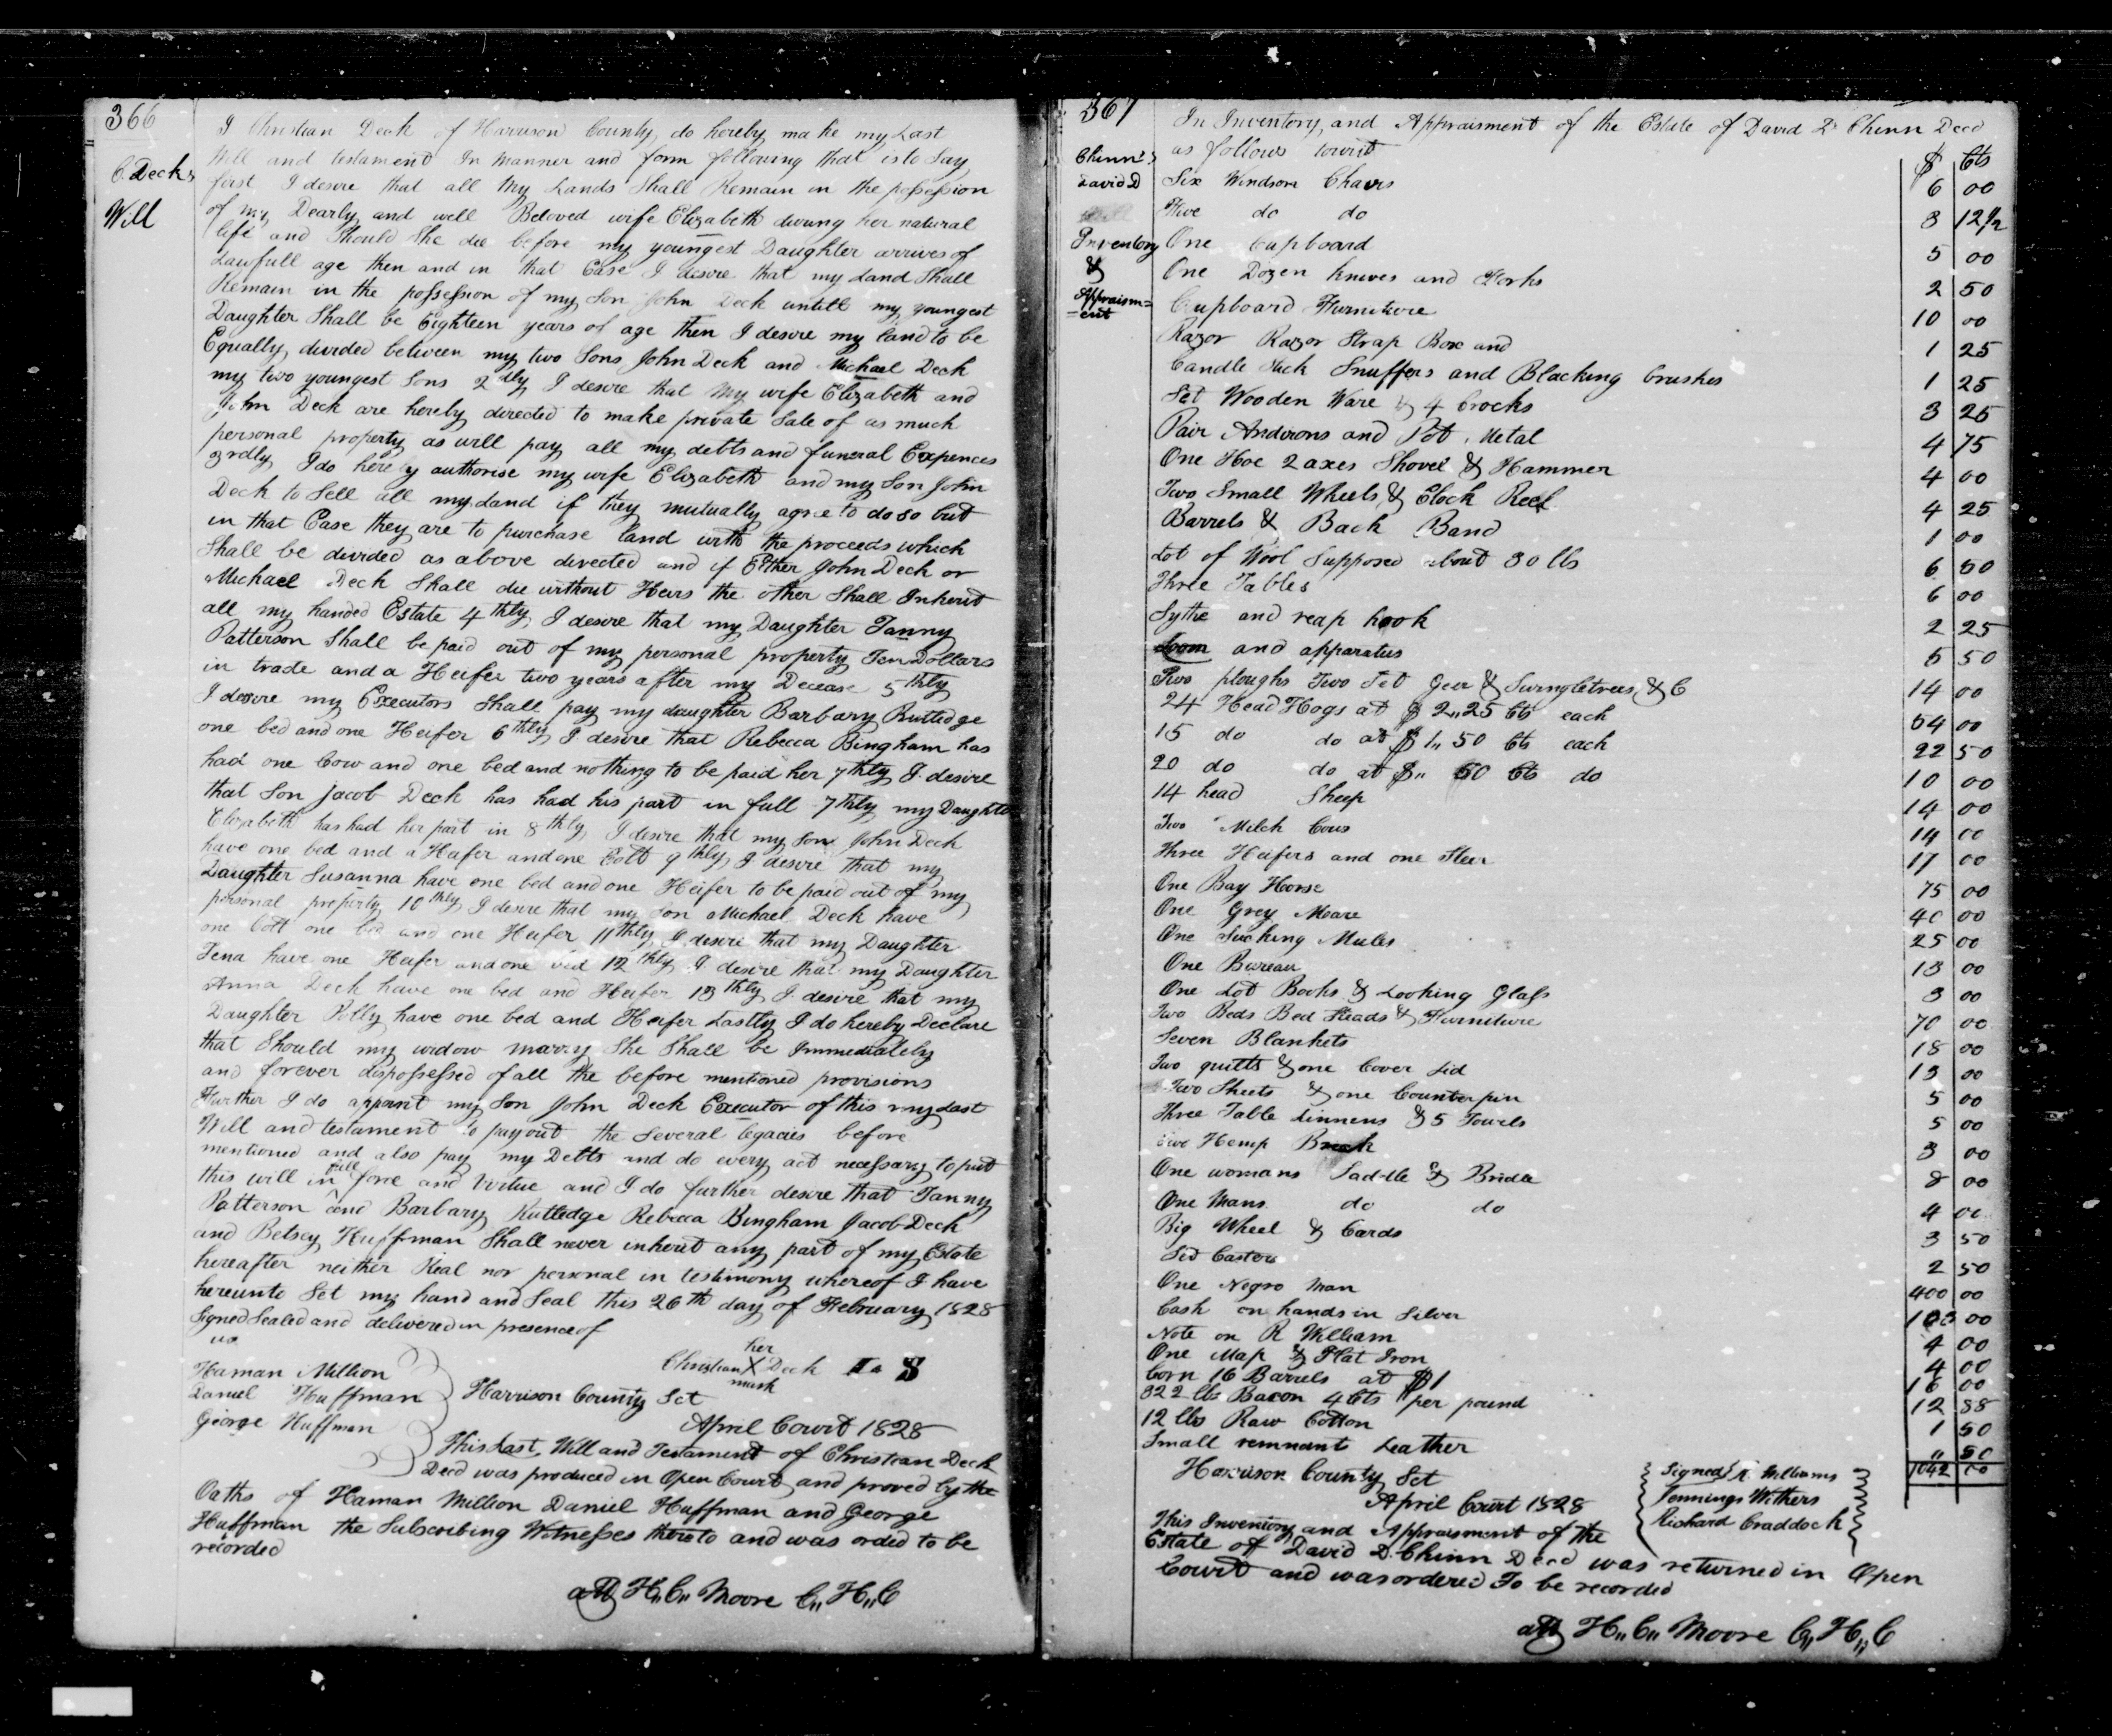 366
C. Decks
Will
I Christian Deck of Harrison County do hereby make my Last
Will and testament In manner and form following that is to Say
first I desire that all my Lands Shall Remain in the possession
of my Dearly and well Beloved wife Elizabeth during her natural
life and Should She die before my youngest Daughter arrives of
Lawfull age then and in that Case I desire that my Land Shall
Remain in the possession of my Son John Deck untill my youngest
Daughter Shall be Eighteen years of age then I desire my land to be
Equally divided between my two Sons John Deck and Michael Deck
my two youngest Sons 2dly I desire that my wife Elizabeth and
John Deck are hereby directed to make private Sale of as much
personal property as will pay all my debts and funeral Expences
3rdly I do hereby authorise my wife Elizabeth and my Son John
Deck to Sell all my Land if they mutually agree to do so but
in that Case they are to purchase land with the proceeds which
Shall be divided as above directed and if Either John Deck or
Michael Deck Shall die without Heirs the other Shall Inherit
all my handed Estate 4thly I desire that my Daughter Fanny
Patterson Shall be paid out of my personal property Ten Dollars
in trade and a Heifer two years after my Decease 5thly
I desire my Executors Shall pay my daughter Barbary Rutledge
one bed and one Heifer 6thly I desire that Rebecca Bingham has
had one Cow and one bed and nothing to be paid her 7thly I desire
that Son Jacob Deck has had his part in full 7thly my Daughter
Elizabeth has had her part in 8thly I desire that my Son John Deck
have one bed and a Heifer and one Colt 9thly I desire that my
Daughter Susanna have one bed and one Heifer to be paid out of my
personal property 10thly I desire that my Son Michael Deck have
one Colt one bed and one Heifer 11thly I desire that my Daughter
Tena have one Heifer and one bed 12thly I desire that my Daughter
Anna Deck have one bed and Heifer 13thly I desire that my
Daughter Polly have one bed and Heifer Lastly I do hereby Declare
that Should my widow marry She Shall be Immediately
and forever dispossessed of all the before mentioned provisions
Further I do appoint my Son John Deck Executor of this my Last
Will and testament to pay out the Several legacies before
mentioned and also pay my Debts and do every act necessary to put
this will in full force and Virtue and I do further desire that Fanny
Patterson and Barbary Rutledge Rebecca Bingham Jacob Deck
and Betsey Huffman Shall never inherit any part of my Estate
hereafter neither Real nor personal in testimony whereof I have
hereunto Set my hand and Seal this 26th day of February 1828
Signed Sealed and delivered in presence of
us
her
Christian X Deck L S
mark
Haman Million
Daniel Huffman
George Huffman
Harrison County Sct
April Court 1828
This Last Will and Testament of Christian Deck
Decd was produced in Open Court and proved by the
Oaths of Haman Million Daniel Huffman and George
Huffman the Subscribing Witnesses thereto and was orded to be
recorded
att H,, C,, Moore C,, H,, C
367
Chinn's
David D
Inventory
&
Appraism=
=ent
In Inventory, and Appraisment of the Estate of David D Chinn Decd
as follows towit $ Cts
Six Windson Chairs 6 00
Five do do 3 12 1/2
One Cupboard 5 00
One Dozen knives and Forks 2 50
Cupboard Furniture 10 00
Razor Razor Strap Box and 1 25
Candle Stick Snuffers and Blacking brushes 1 25
Set Wooden Ware & 4 Crocks 3 25
Pair Andirons and Pot Metal 4 75
One Hoe 2 axes Shovel & Hammer 4 00
Two Small Wheels & Clock Reel 4 25
Barrels & Back Band 1 00
Lot of Wool Supposed about 30 lbs 6 50
Three Tables 6 00
Sythe and reap hook 2 25
Loom and apparatus 5 50
Two ploughs Two Set Geer & Swingletrees & C 14 00
24 Head Hogs at $ 2,,25 Cts each 54 00
15 do do at $ 1,, 50 Cts each 22 50
20 do do at $,, 50 Cts do 10 00
14 head Sheep 14 00
Two Milch Cows 14 00
Three Heifers and one Steer 17 00
One Bay Horse 75 00
One Grey Meare 40 00
One Sucking Mules 25 00
One Bureau 13 00
One Lot Books & Looking Glass 3 00
Two Beds Bed Steads & Furniture 70 00
Seven Blankets 18 00
Two quilts & one Cover Lid 13 00
Two Sheets & one Counterpin 5 00
Three Table Linnens & 5 Towels 5 00
Hemp Break 3 00
One womans Saddle & Bridle 8 00
One Mans do do 4 00
Big Wheel & Cards 3 50
Set Castors 2 50
One Negro Man 400 00
Cash on hands in Silver 103 00
Note on R William 4 00
One Map & Flat Iron 4 00
Corn 16 Barrels at $1 16 00
322 lbs Bacon 4 Cts per pound 12 88
12 lbs Raw Cotton 1 50
Small remnant Leather ,, 50
1042 00
Harrison County Sct
April Court 1828
Signed R Williams
Jennings Withers
Richard Craddock
This Inventory and Appraisment of the
Estate of David D. Chinn Decd was returned in Open
Court and was ordered To be recorded
att H,, C,, Moore C,, H,, C